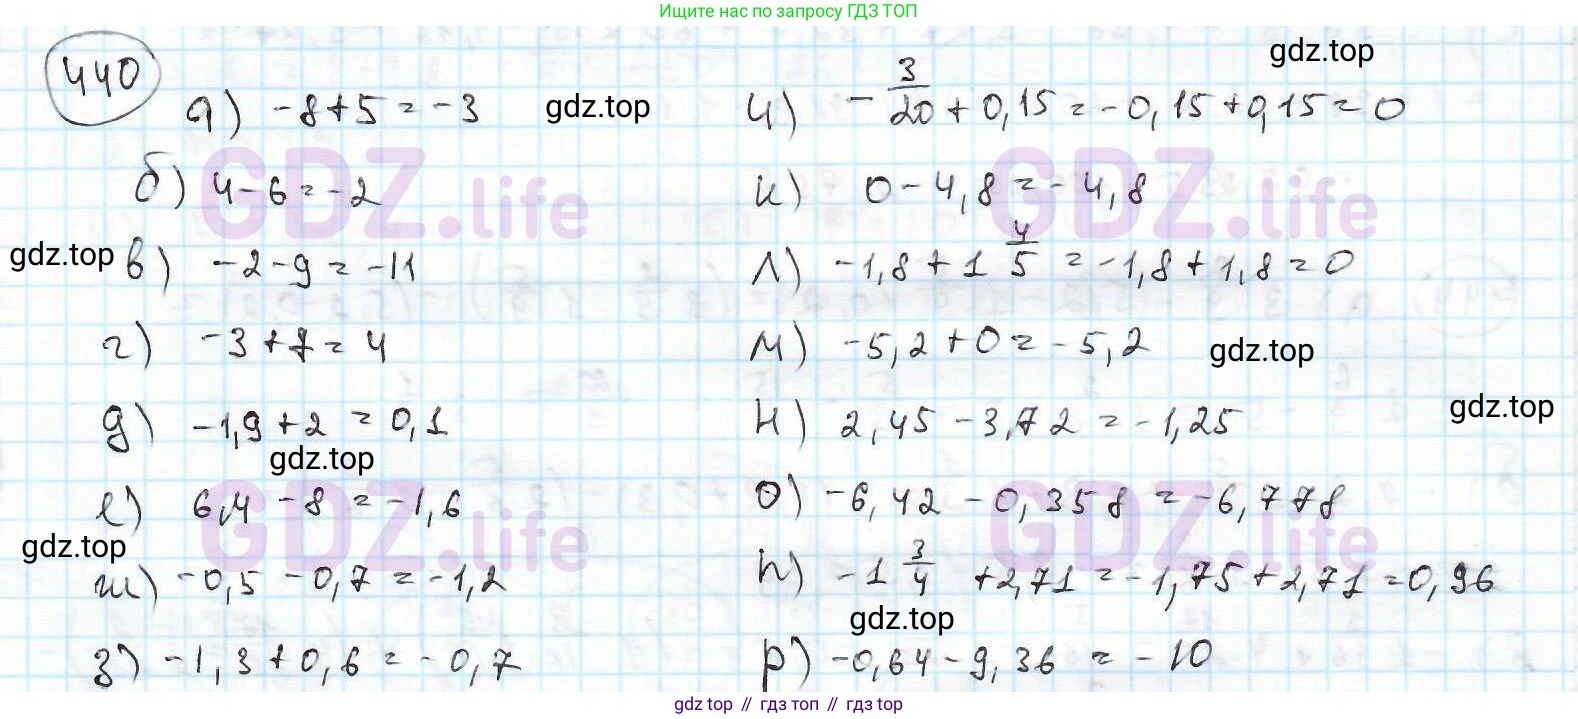 Ищите нас по запросу ГДЗ ТОП
440
gdz.top
а) -8+5=-3
gdz.top
б) 4-6=-2
gdz.top
в) -2-9=-11
г) -3+7=4
д) -1,9+2=0,1
gdz.top
е) 6,4-8=-1,6
gdz.top
ж) -0,5-0,7=-1,2
з) -1,3+0,6=-0,7
и) -3/20+0,15=-0,15+0,15=0
к) 0-4,8=-4,8
л) -1,8+1 4/5=-1,8+1,8=0
м) -5,2+0=-5,2
gdz.top
gdz.top
н) 2,45-3,72=-1,25
о) -6,42-0,358=-6,778
п) -1 3/4+2,71=-1,75+2,71=0,96
gdz.top
р) -0,64-9,36=-10
GDZ.life
GDZ.life
GDZ.life
GDZ.life
gdz top // гдз топ // гдз top